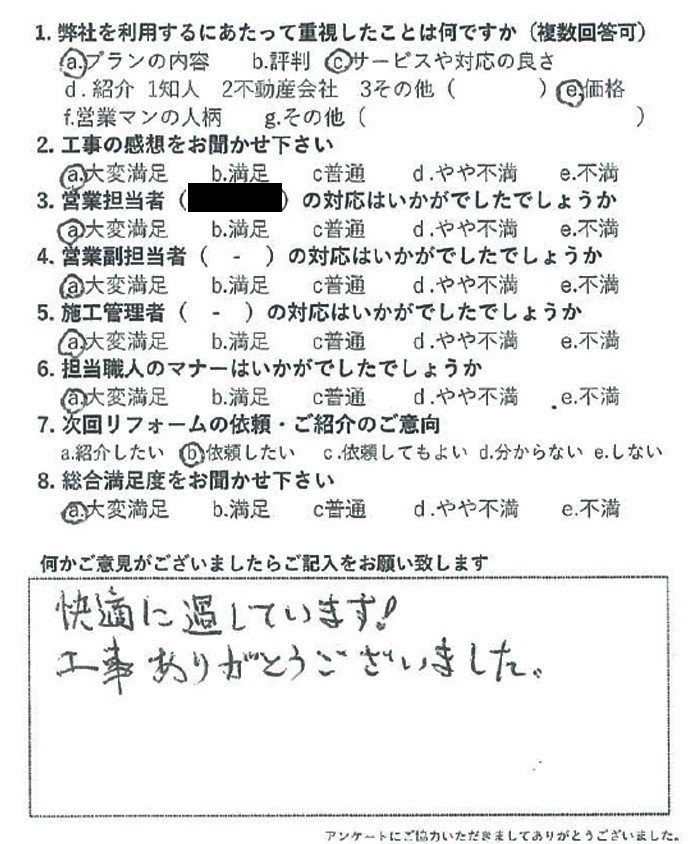 1. 弊社を利用するにあたって重視したことは何ですか（複数回答可）
a.プランの内容 b.評判 cサービスや対応の良さ
d. 紹介 1知人 2不動産会社 3その他（ ）e.価格
f.営業マンの人柄 g.その他（ ）
2. 工事の感想をお聞かせ下さい
a.大変満足 b.満足 c普通 d.やや不満 e.不満
3. 営業担当者（ ）の対応はいかがでしたでしょうか
a大変満足 b.満足 c普通 d.やや不満 e.不満
4. 営業副担当者（ - ）の対応はいかがでしたでしょうか
a大変満足 b.満足 c普通 d.やや不満 e.不満
5. 施工管理者（ - ）の対応はいかがでしたでしょうか
a.大変満足 b.満足 c普通 d.やや不満 e.不満
6. 担当職人のマナーはいかがでしたでしょうか
a.大変満足 b.満足 c普通 d.やや不満 e.不満
7. 次回リフォームの依頼・ご紹介のご意向
a.紹介したい b依頼したい c.依頼してもよい d.分からない e.しない
8. 総合満足度をお聞かせ下さい
a.大変満足 b.満足 c普通 d.やや不満 e.不満
何かご意見がございましたらご記入をお願い致します
快適に過しています!
工事ありがとうございました。
アンケートにご協力いただきましてありがとうございました。